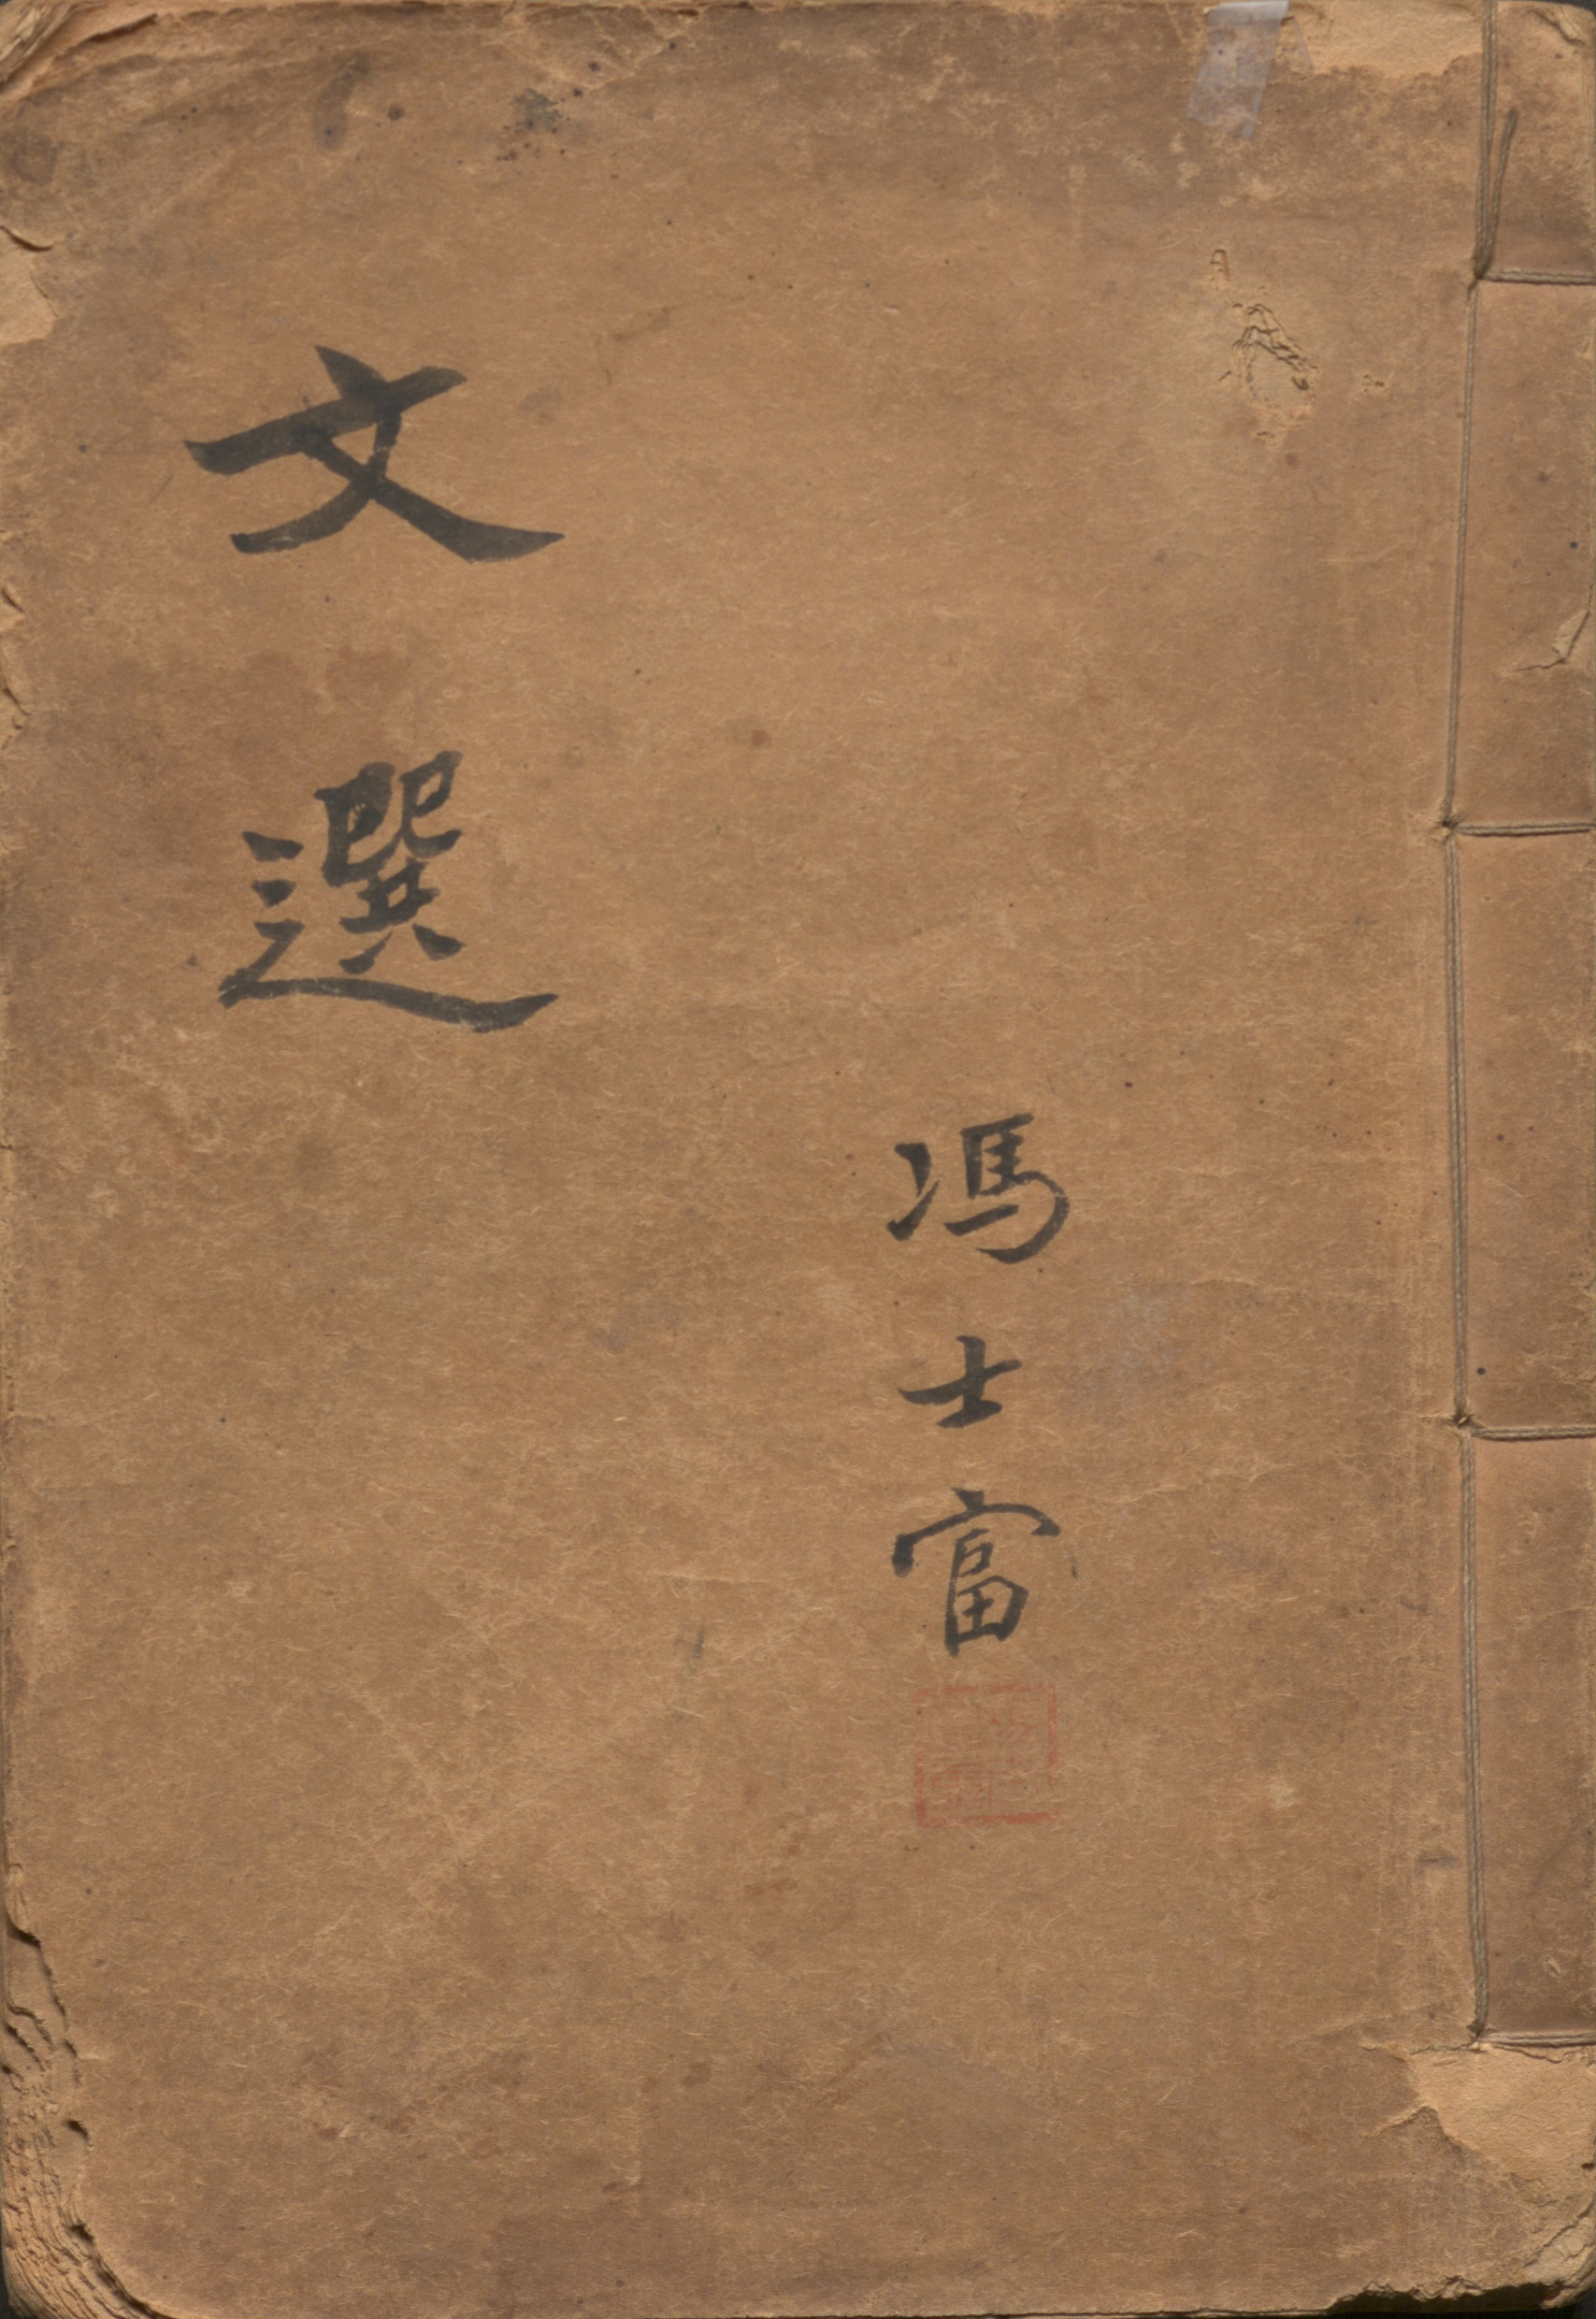 文選
馮士富